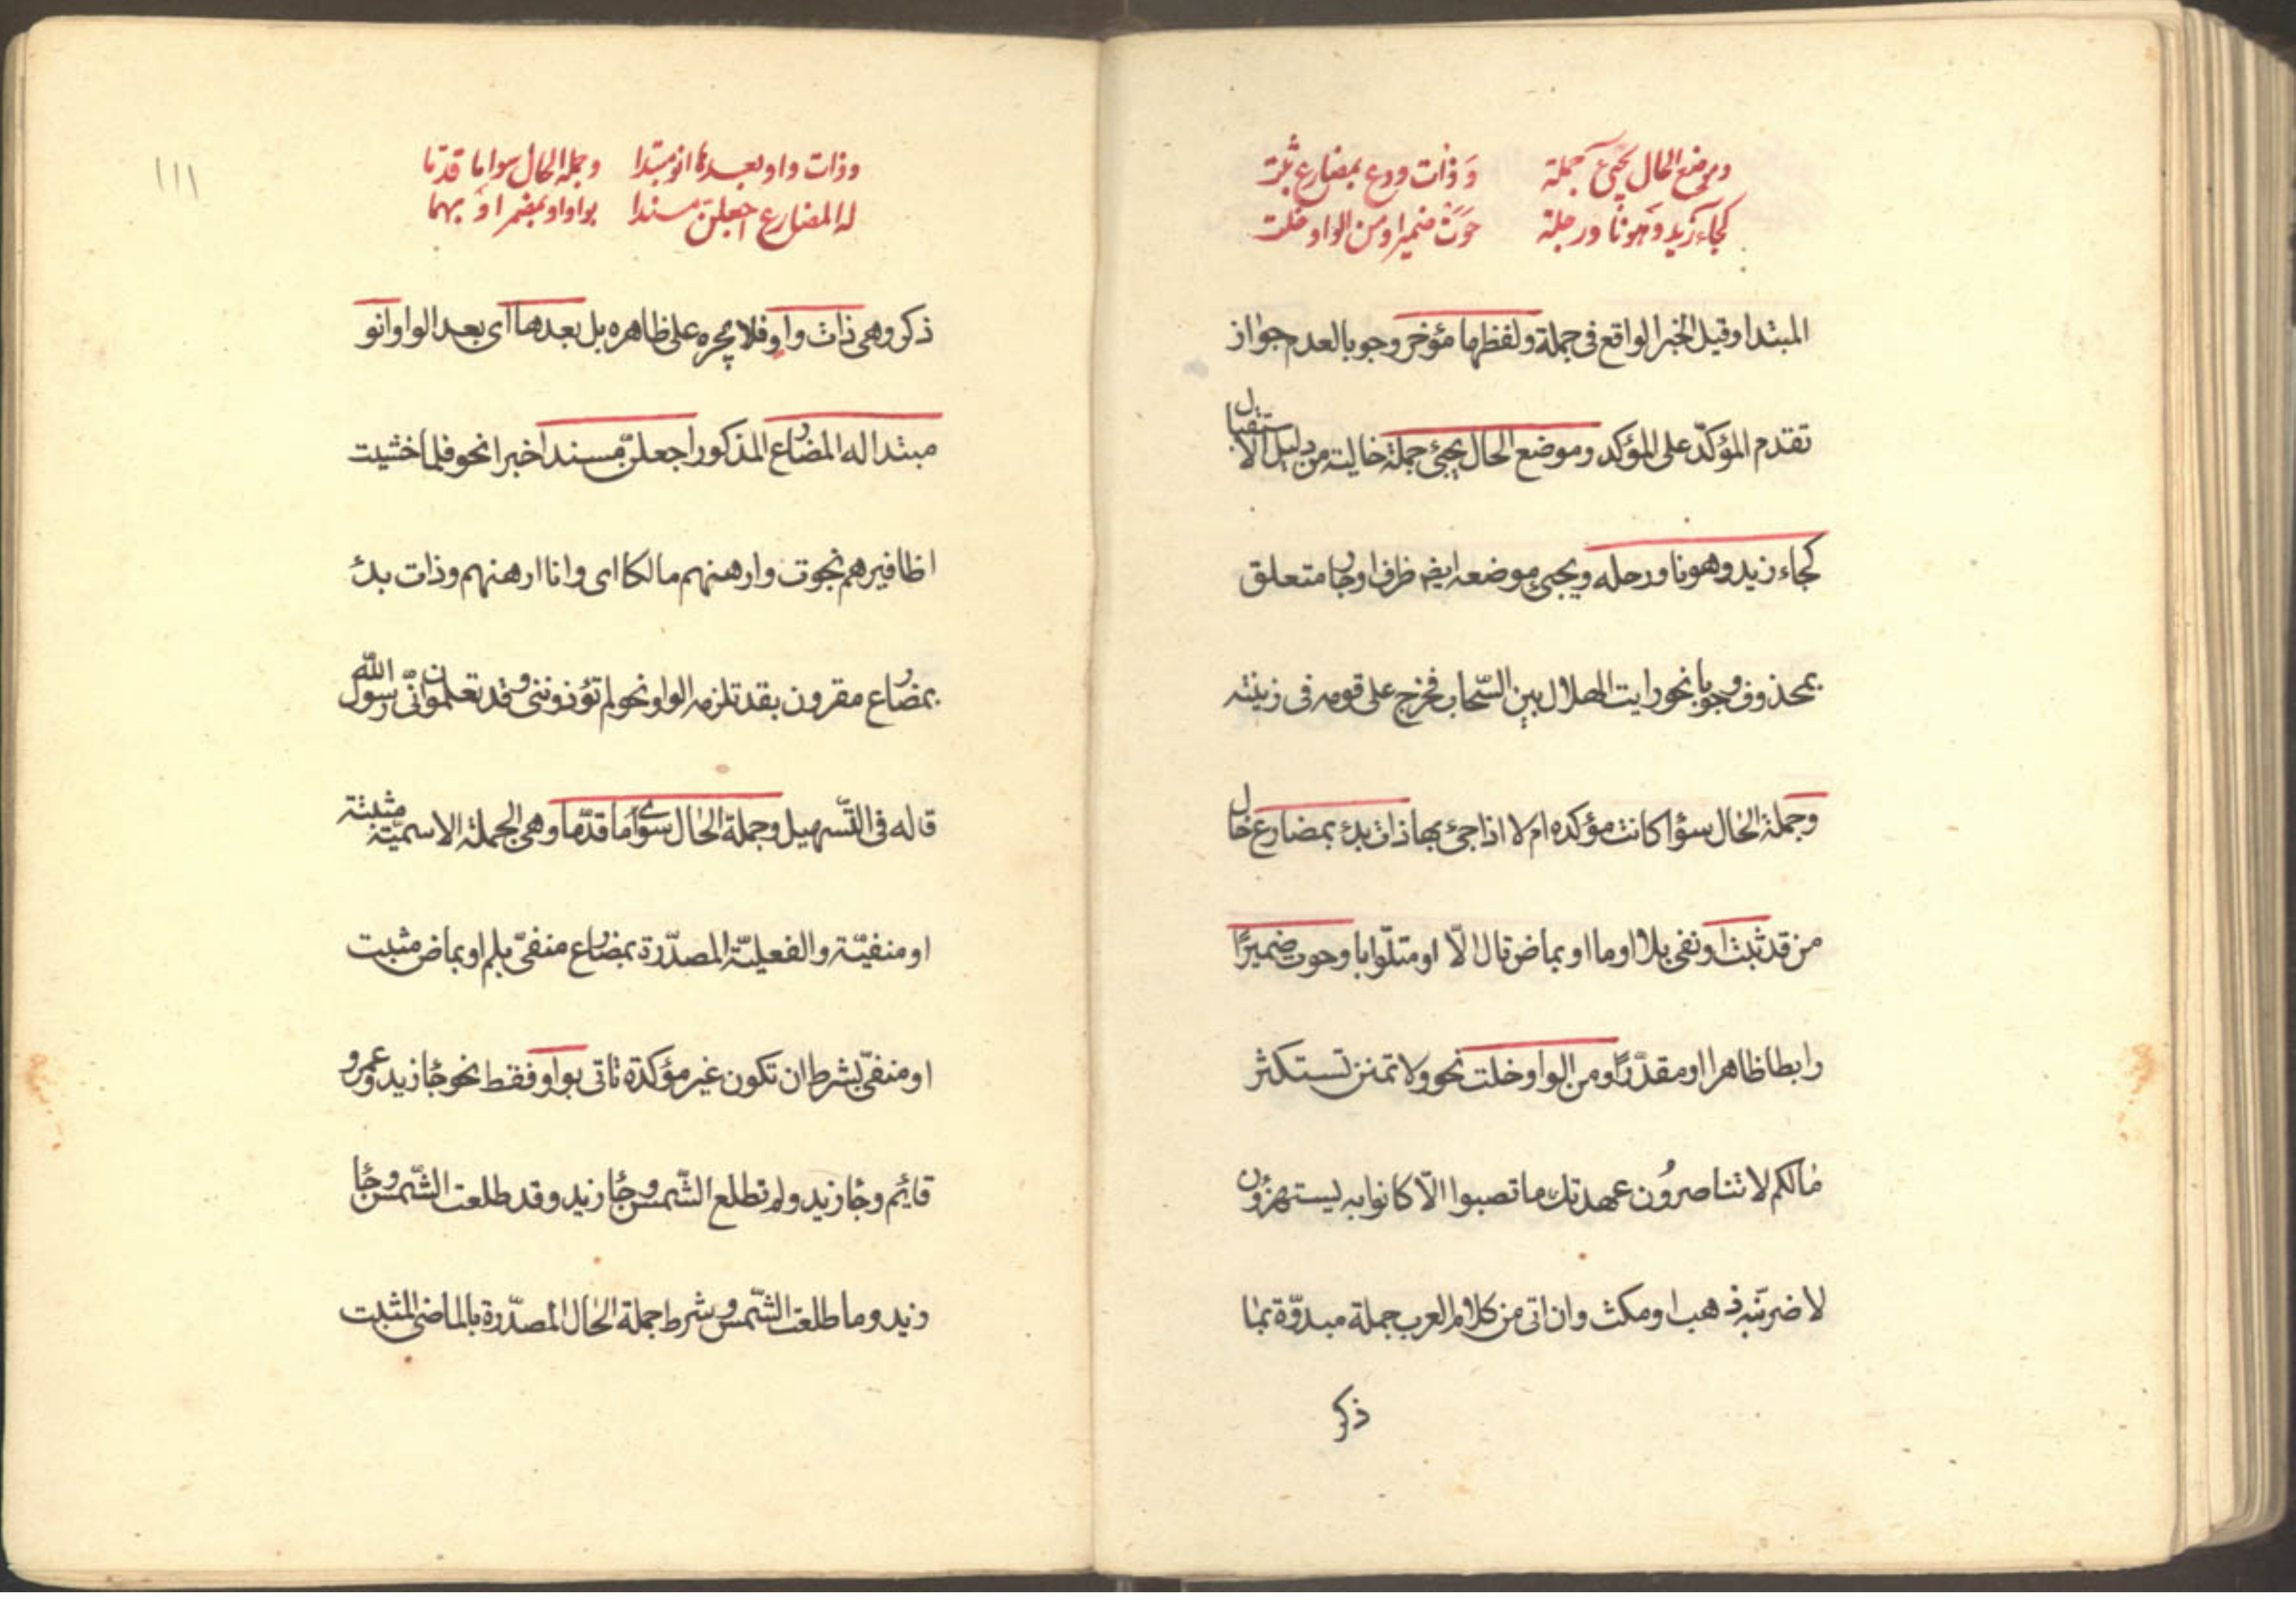 وموضع الحال يجئ جملة وذات ودع بمضارع ثبت
كجاء زيد وهو نا ورحلة حوت ضميرا ومن الواو خلت
المبتدا وقيل الخبر الواقع فى جملة ولفظها مؤخر وجوبا لعدم جواز
تقدم المؤكّد على المؤكد وموضع الحال يجئ جملة خالية من دليل الاستقبال
كجاء زيد وهو نا ورحله ويجئ موضعه ايضم ظرف او جار متعلق
بمحذوف وجوبا نحو رايت الهلال بين السّحاب فخرج على قومه فى زينته
وجملة الحال سؤا كانت مؤكده ام لا اذا جئ بها ذات بدئ بمضارع خال
من قد ثبت او نفى بلا او ما او بماض تال الّا او متلوّا باو حوت ضميرًا
رابطا ظاهرا او مقدّرًا ومن الواو خلت نحو ولا تمنن تستكثر
مالكم لا تناصرُون عهدتك ما تصبوا الّا كانوا به يستهزؤن
لاضربّنه ذهب او مكث وان اتى من كلام العرب جملة مبدوّة بما
ذكر
١١١
وذات واو بعدها انو مبتدا وجملة الحال سوا ما قدما
له المضارع اجعلن مسندا بواو او بمضمر او بهما
ذكر وهى ذات واو فلا مجره على ظاهره بل بعدها اى بعد الواو انو
مبتدا له المضارع المذكور اجعلنّ مسندا خبرا نحو فلما خشيت
اظافيرهم نجوت وارهنهم مالكا اى وانا ارهنهم وذات بدئ
بمضارع مقرون بقد تلزمه الواو نحو لم تؤذوننى وقد تعلمون انّى رسول الله
قاله فى التّسهيل وجملة الحال سوى ما قدّما وهى الجملة الاسميّة مثبتة
او منفيّة والفعليّة المصدّرة بمضارع منفىّ بلم او بماض مثبت
او منفىّ بشرط ان تكون غير مؤكدة تاتى بواو فقط نحو جا زيد وعمرو
قائم وجا زيد ولم تطلع الشّمس وجا زيد وقد طلعت الشّمس وجا
زيد وما طلعت الشّمس وشرط جملة الحال المصدّرة بالماضى المثبت